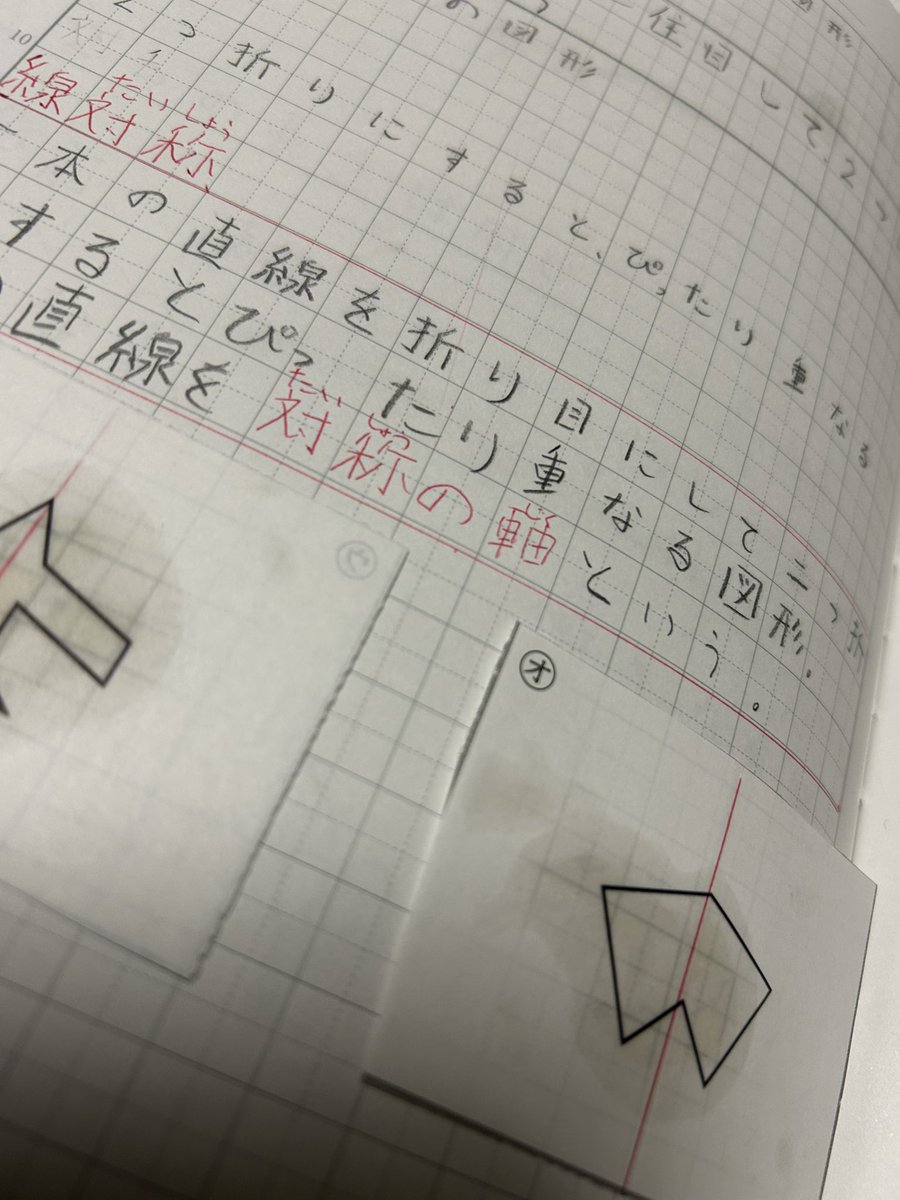 住目して、2つ
の図形
2つ折りにすると、ぴったり重なる
10
線対称
たいしょう
一本の直線を折り目にして二つ折
するとぴったり重なる図形.
の直線を対称の軸という。
たい しょう
オ